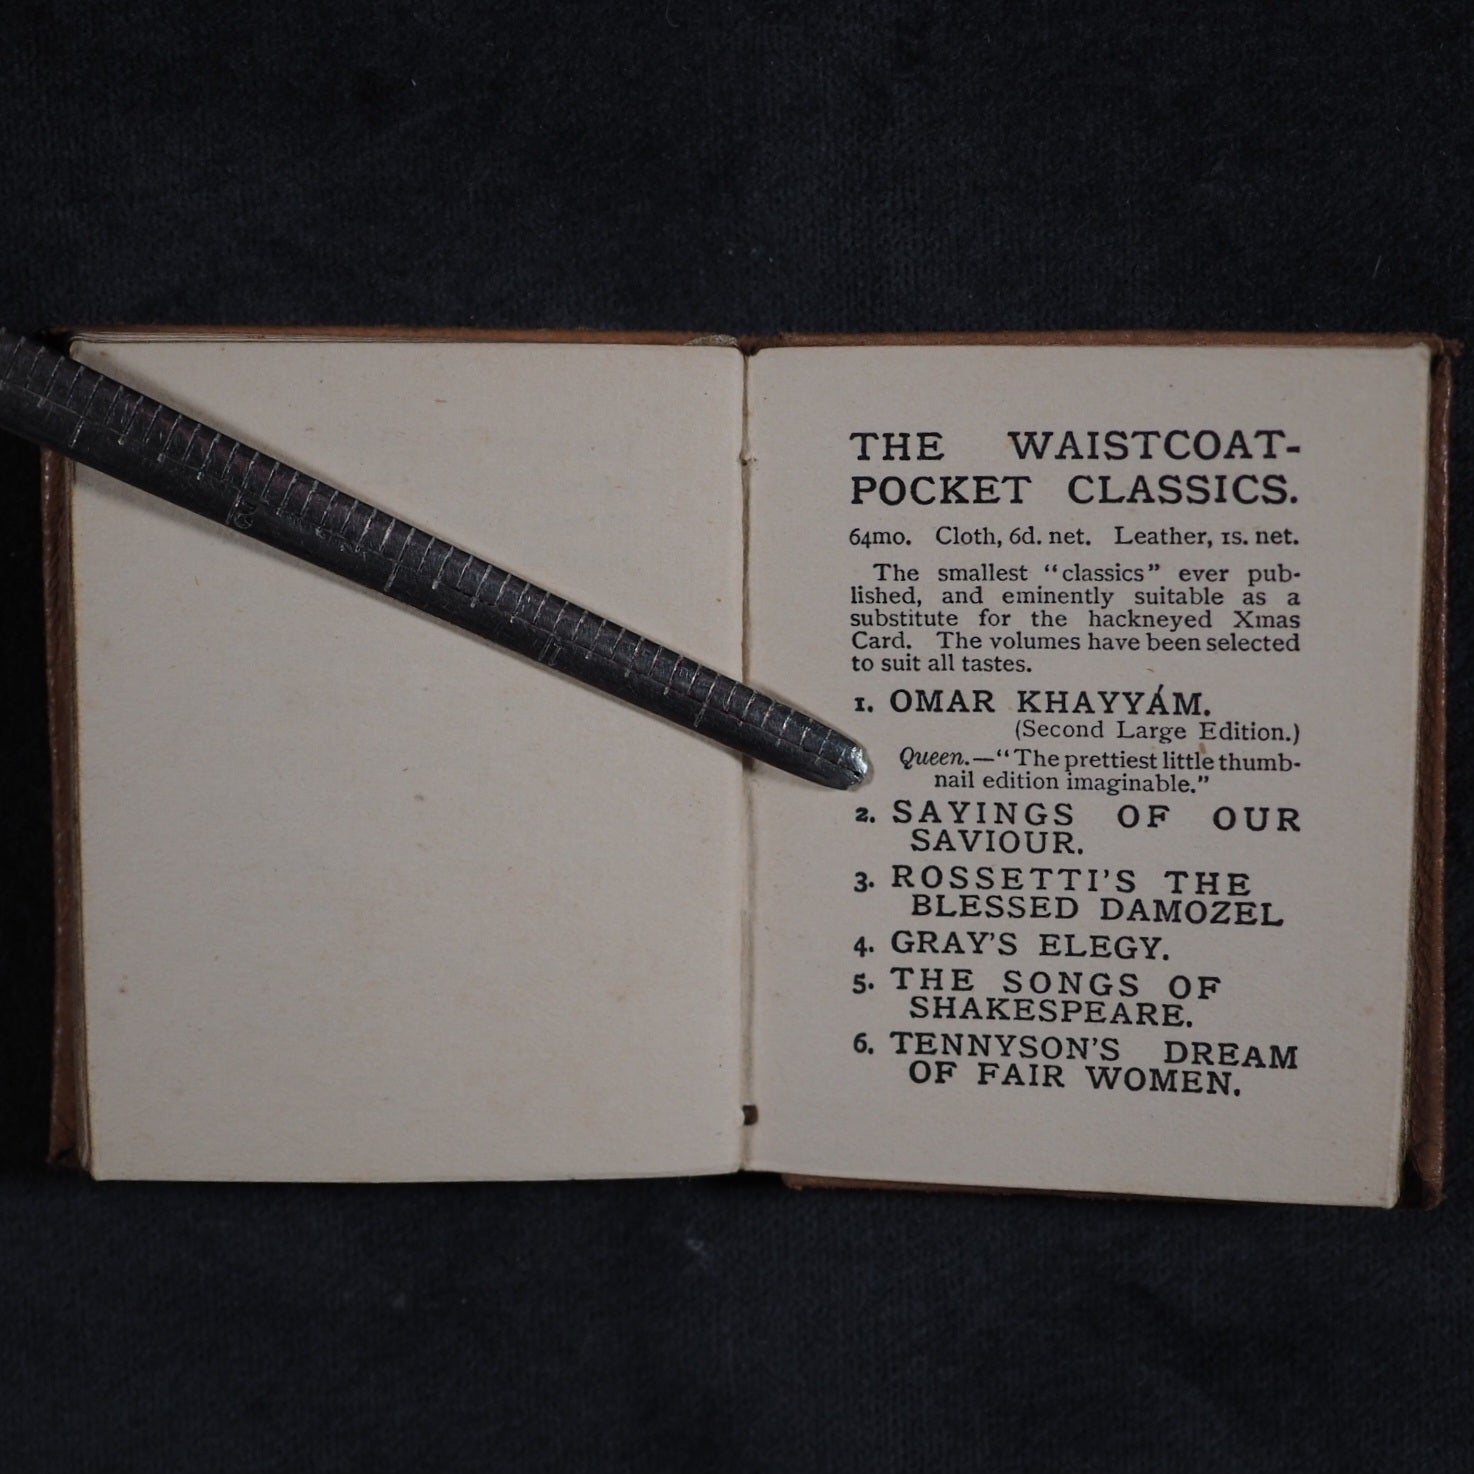 THE WAISTCOAT-
POCKET CLASSICS.
64mo. Cloth, 6d. net. Leather, 1s. net.
The smallest “classics” ever pub-
lished, and eminently suitable as a
substitute for the hackneyed Xmas
Card. The volumes have been selected
to suit all tastes.
1. OMAR KHAYYÁM.
(Second Large Edition.)
Queen.—“The prettiest little thumb-
nail edition imaginable.”
2. SAYINGS OF OUR
SAVIOUR.
3. ROSSETTI’S THE
BLESSED DAMOZEL
4. GRAY’S ELEGY.
5. THE SONGS OF
SHAKESPEARE.
6. TENNYSON’S DREAM
OF FAIR WOMEN.